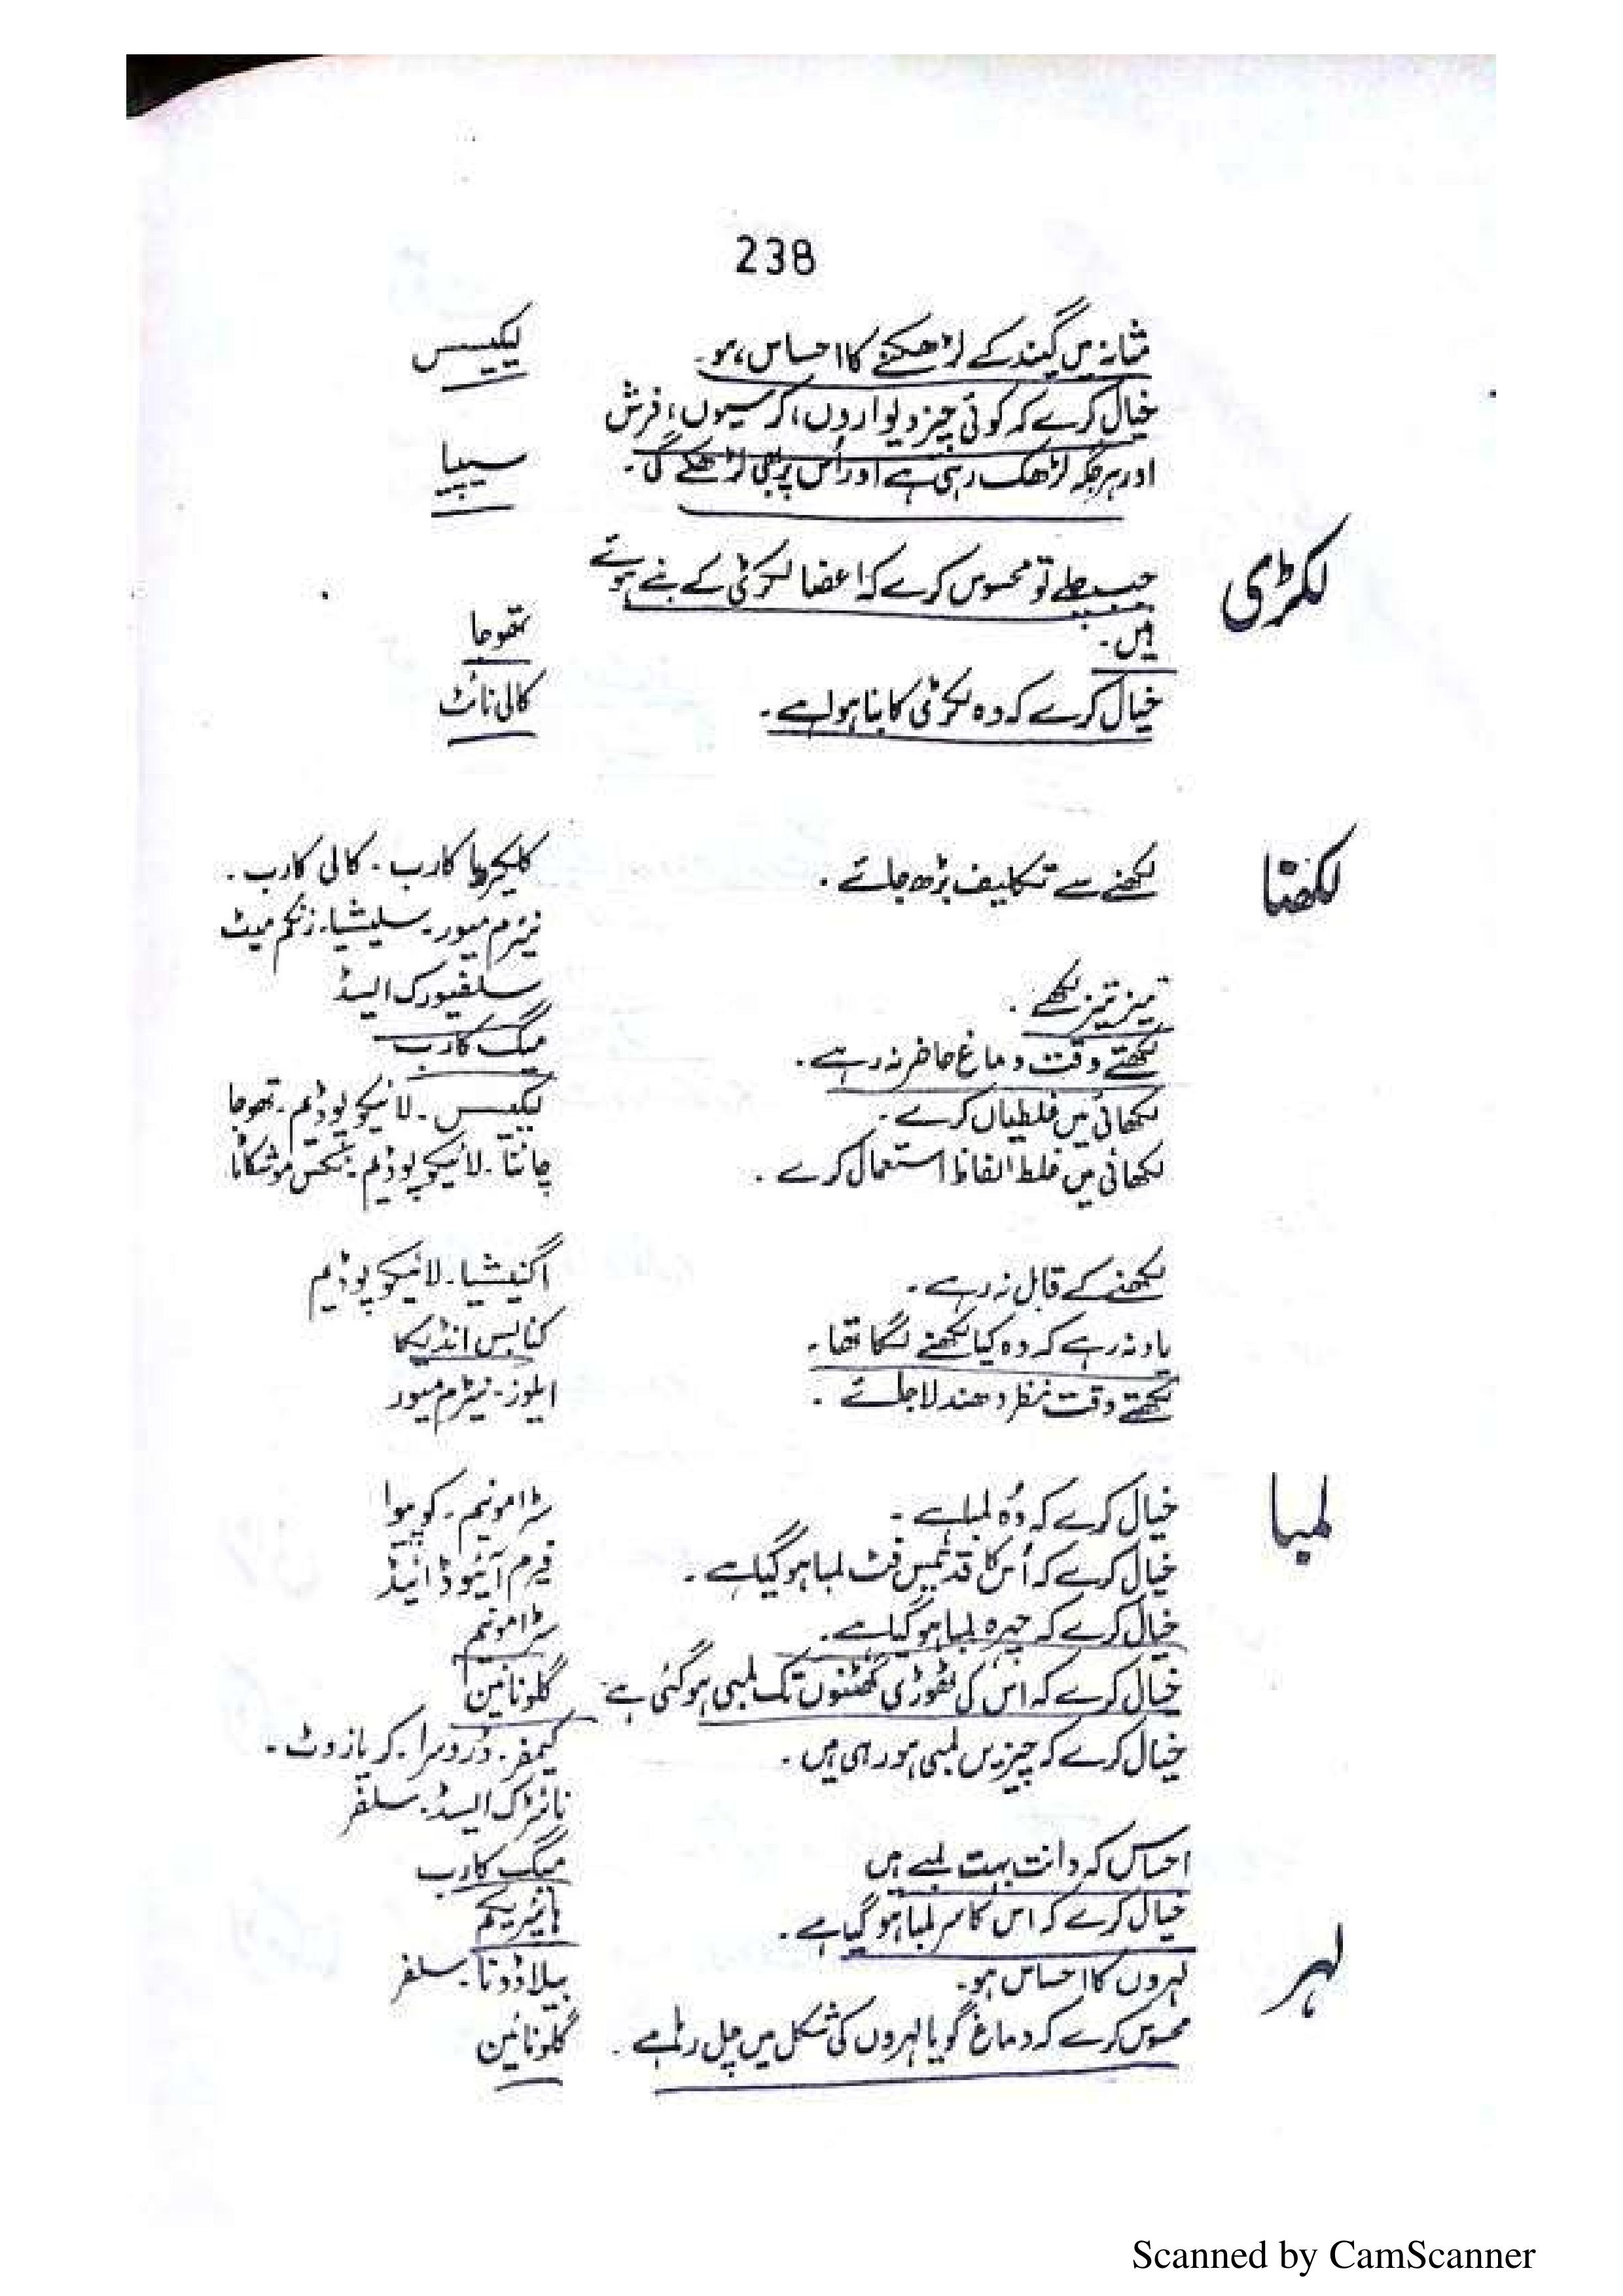 238
مثانہ میں گیند کے لڑھکنے کا احساس ہو۔ لیکیسس
خیال کرے کہ کوئی چیز دیواروں، کرسیوں، فرش
اور ہر جگہ لڑھک رہی ہے اور اُس پر بھی لڑھکے گی۔ سیپیا
لکڑی جب چلے تو محسوس کرے کہ اعضا لکڑی کے بنے ہوئے
ہیں۔ تھوجا
خیال کرے کہ وہ لکڑی کا بنا ہوا ہے۔ کالی نائٹ
لکھنا لکھنے سے تکلیف بڑھ جائے۔ کلیکیریا کارب۔ کالی کارب۔
نیٹرم میور۔ سلیشیا۔ زنکم میٹ
تیز تیز لکھے۔ سلفیورک ایسڈ
لکھتے وقت دماغ حاضر نہ رہے۔ میگ کارب
لکھائی میں غلطیاں کرے۔ لیکیسس۔ لائیکوپوڈیم۔ تھوجا
لکھائی میں غلط الفاظ استعمال کرے۔ چائنا۔ لائیکوپوڈیم۔ نکس موشکاٹا
لکھنے کے قابل نہ رہے۔ اگنیشیا۔ لائیکوپوڈیم
یاد نہ رہے کہ وہ کیا لکھنے لگا تھا۔ کنابس انڈیکا
لکھتے وقت نظر دھندلا جائے۔ ایلوز۔ نیٹرم میور
لمبا خیال کرے کہ وُہ لمبا ہے۔ سٹرامونیم۔ کوپیوا
خیال کرے کہ اُس کا قد تیس فٹ لمبا ہو گیا ہے۔ فیرم آئیوڈائیڈ
خیال کرے کہ چہرہ لمبا ہو گیا ہے۔ سٹرامونیم
خیال کرے کہ اس کی ٹھوڑی گھٹنوں تک لمبی ہو گئی ہے۔ گلونائین
خیال کرے کہ چیزیں لمبی ہو رہی ہیں۔ کیمفر۔ ڈروسرا۔ کریازوٹ۔
نائٹرک ایسڈ۔ سلفر
احساس کہ دانت بہت لمبے ہیں میگ کارب
خیال کرے کہ اس کا سر لمبا ہو گیا ہے۔ ہائپریکم
لہر لہروں کا احساس ہو۔ بیلاڈونا۔ سلفر
محسوس کرے کہ دماغ گویا لہروں کی شکل میں چل رہا ہے۔ گلونائین
Scanned by CamScanner